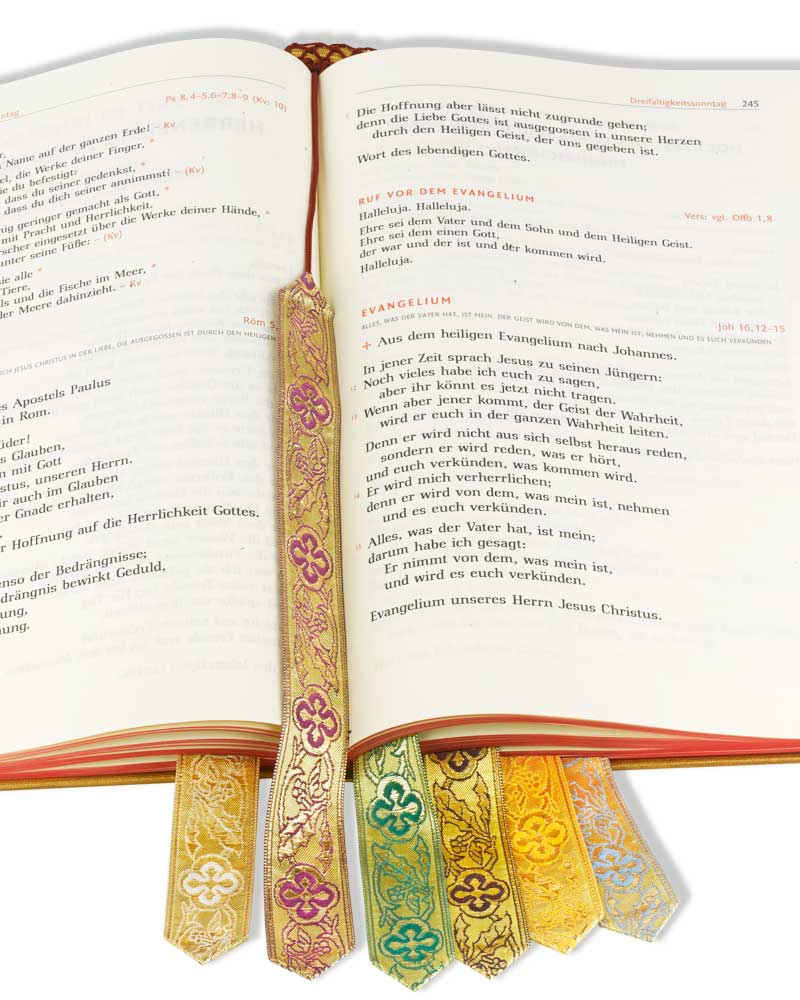 ntag Ps 8,4–5.6–7.8–9 (Kv: 10)
Name auf der ganzen Erde! – Kv
el, die Werke deiner Finger, *
ie du befestigt:
dass du seiner gedenkst, *
dass du dich seiner annimmst? – (Kv)
nig geringer gemacht als Gott, *
mit Pracht und Herrlichkeit.
rscher eingesetzt über die Werke deiner Hände, *
unter seine Füße: – (Kv)
sie alle *
Tiere,
ls und die Fische im Meer, *
der Meere dahinzieht. – Kv
Röm 5,
RCH JESUS CHRISTUS IN DER LIEBE, DIE AUSGEGOSSEN IST DURCH DEN HEILIGEN
es Apostels Paulus
in Rom.
üder!
s Glauben,
n mit Gott
stus, unseren Herrn.
ir auch im Glauben
er Gnade erhalten,
r Hoffnung auf die Herrlichkeit Gottes.
enso der Bedrängnisse;
edrängnis bewirkt Geduld,
ung,
nung.
Dreifaltigkeitssonntag 245
5 Die Hoffnung aber lässt nicht zugrunde gehen;
denn die Liebe Gottes ist ausgegossen in unsere Herzen
durch den Heiligen Geist, der uns gegeben ist.
Wort des lebendigen Gottes.
RUF VOR DEM EVANGELIUM
Halleluja. Halleluja. Vers: vgl. Offb 1,8
Ehre sei dem Vater und dem Sohn und dem Heiligen Geist.
Ehre sei dem einen Gott,
der war und der ist und der kommen wird.
Halleluja.
EVANGELIUM Joh 16,12–15
ALLES, WAS DER VATER HAT, IST MEIN. DER GEIST WIRD VON DEM, WAS MEIN IST, NEHMEN UND ES EUCH VERKÜNDEN
+ Aus dem heiligen Evangelium nach Johannes.
In jener Zeit sprach Jesus zu seinen Jüngern:
12 Noch vieles habe ich euch zu sagen,
aber ihr könnt es jetzt nicht tragen.
13 Wenn aber jener kommt, der Geist der Wahrheit,
wird er euch in der ganzen Wahrheit leiten.
Denn er wird nicht aus sich selbst heraus reden,
sondern er wird reden, was er hört,
und euch verkünden, was kommen wird.
14 Er wird mich verherrlichen;
denn er wird von dem, was mein ist, nehmen
und es euch verkünden.
15 Alles, was der Vater hat, ist mein;
darum habe ich gesagt:
Er nimmt von dem, was mein ist,
und wird es euch verkünden.
Evangelium unseres Herrn Jesus Christus.